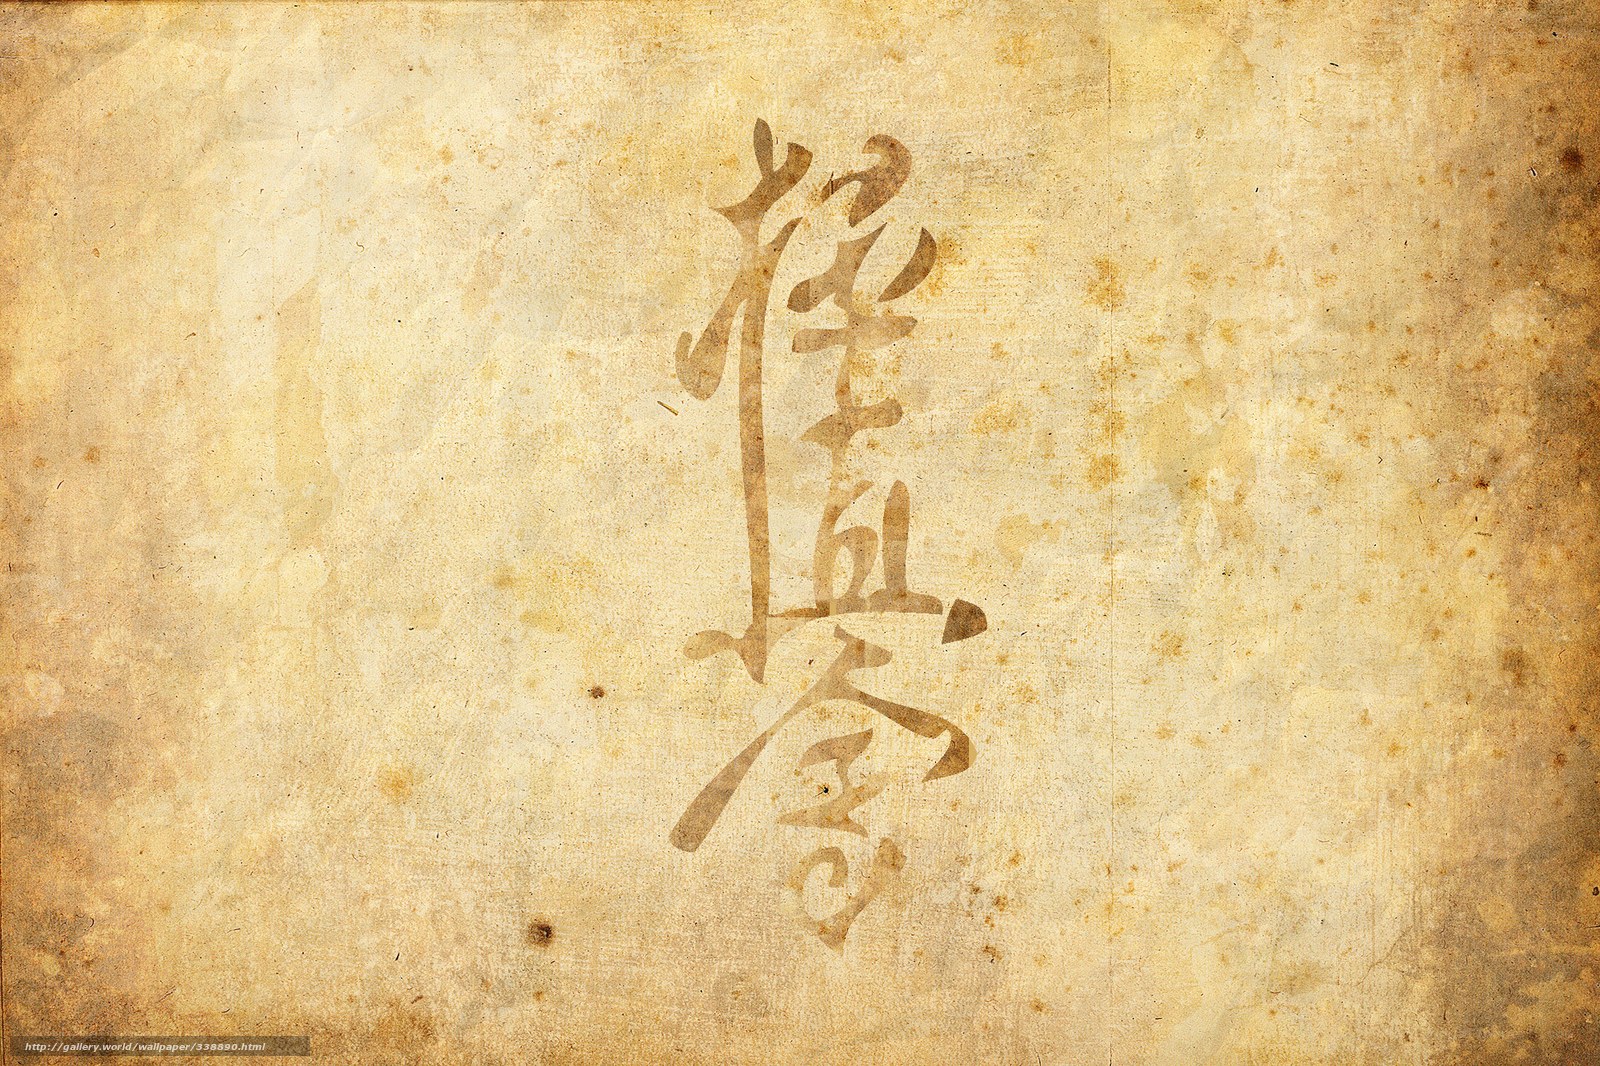 極真会
http://gallery.world/wallpaper/338890.html